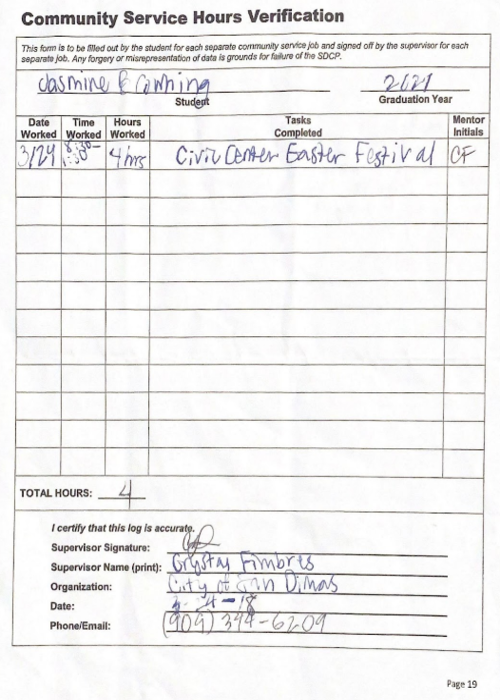 Community Service Hours Verification
This form is to be filled out by the student for each separate community service job and signed off by the supervisor for each
separate job. Any forgery or misrepresentation of data is grounds for failure of the SDCP.
Jasmine
Student
Graduation Year
Date Worked Time Worked Hours Worked Tasks Completed Mentor Initials
3/24 4 hrs Civic Center Easter Festival CF
TOTAL HOURS: 4
I certify that this log is accurate.
Supervisor Signature:
Supervisor Name (print): Crystal Fimbres
Organization: City of San Dimas
Date:
Phone/Email: (909) 394-6209
Page 19